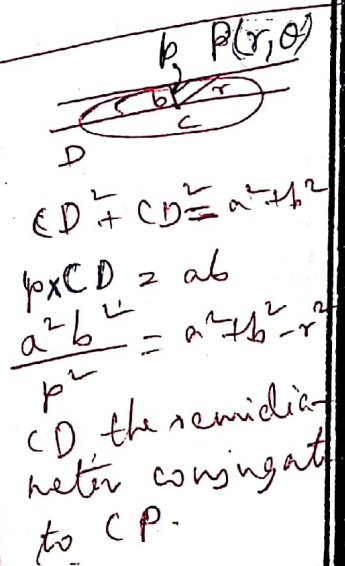 p P(r,θ)
b r
C
D
CD² + CD² = a²+b²
p×CD = ab
a²b²/p² = a²+b²-r²
CD, the semidia-
meter conjugate
to CP.